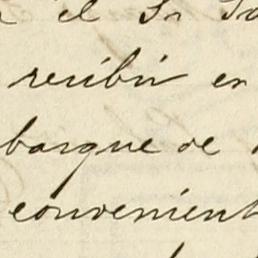 el Sr
recibir en
barque de
convenient